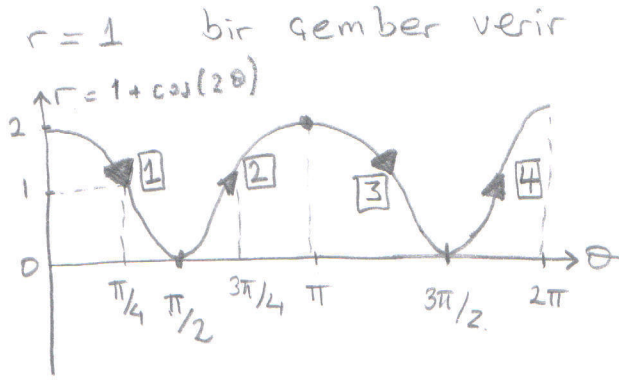 r = 1 bir çember verir
r = 1 + cos(2θ)
2
1
0
1
2
3
4
π/4
π/2
3π/4
π
3π/2
2π
θ